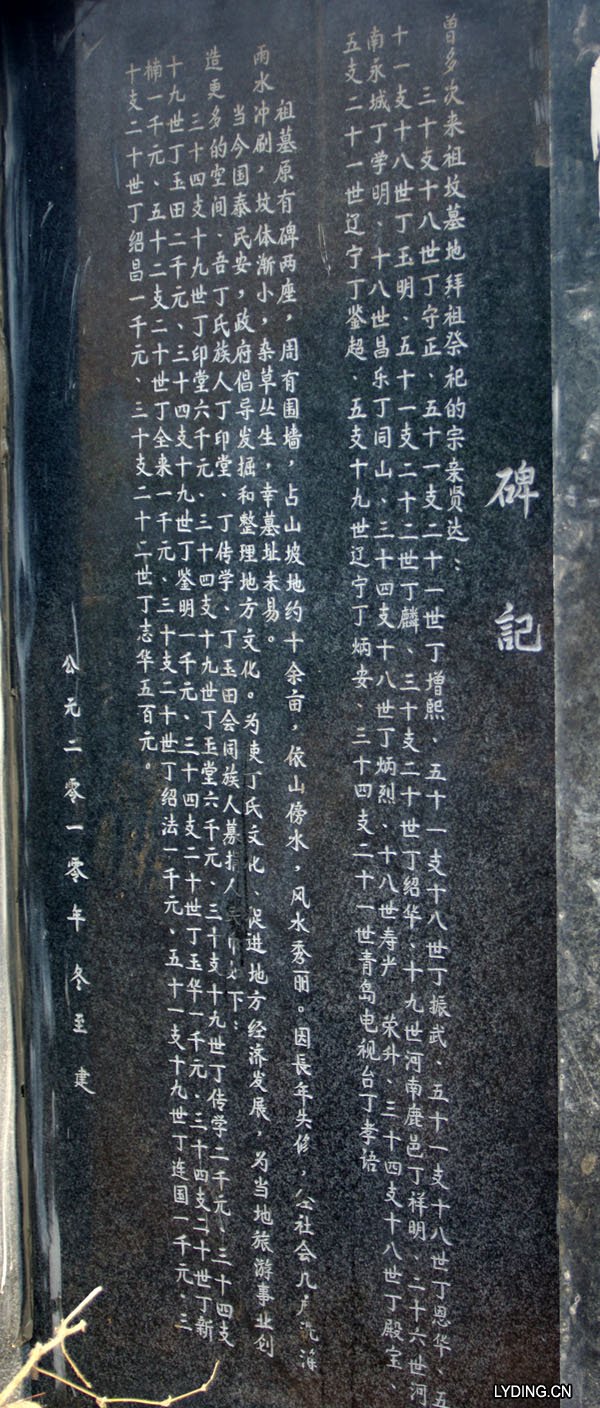 碑記
曾多次来祖坟墓地拜祖祭祀的宗亲贤达：
三十支十八世丁守正、五十一支二十一世丁增熙、五十一支十八世丁振武、五十一支十八世丁恩华、五
十一支十八世丁玉明、五十一支二十二世丁麟、三十支二十世丁绍华、十九世河南鹿邑丁祥明、二十六世河
南永城丁学明、十八世昌乐丁同山、三十四支十八世丁炳烈、十八世寿光 荣升、三十四支十八世丁殿宝、
五支二十一世辽宁丁鉴超、五支十九世辽宁丁炳安、三十四支二十一世青岛电视台丁孝语
祖墓原有碑两座，周有围墙，占山坡地约十余亩，依山傍水，风水秀丽。因長年失修，社会几
雨水冲刷，坟体渐小，杂草丛生，幸墓址未易。
当今国泰民安，政府倡导发掘和整理地方文化。为丁氏文化、促进地方经济发展，为当地旅游事业创
造更多的空间、吾丁氏族人丁印堂、丁传学、丁玉田会同族人募捐下：
三十四支十九世丁印堂六千元、三十四支十九世丁玉堂六千元、三十支十九世丁传学二千元、三十四支
十九世丁玉田二千元、三十四支十九世丁鉴明一千元、三十四支二十世丁玉华一千元、三十四支二十世丁新
楠一千元、五十二支二十世丁全来一千元、三十支二十世丁绍法一千元、五十一支十九世丁连国一千元、三
十支二十世丁绍昌一千元、三十支二十二世丁志华五百元。
公元二零一零年 冬至 建
LYDING.CN